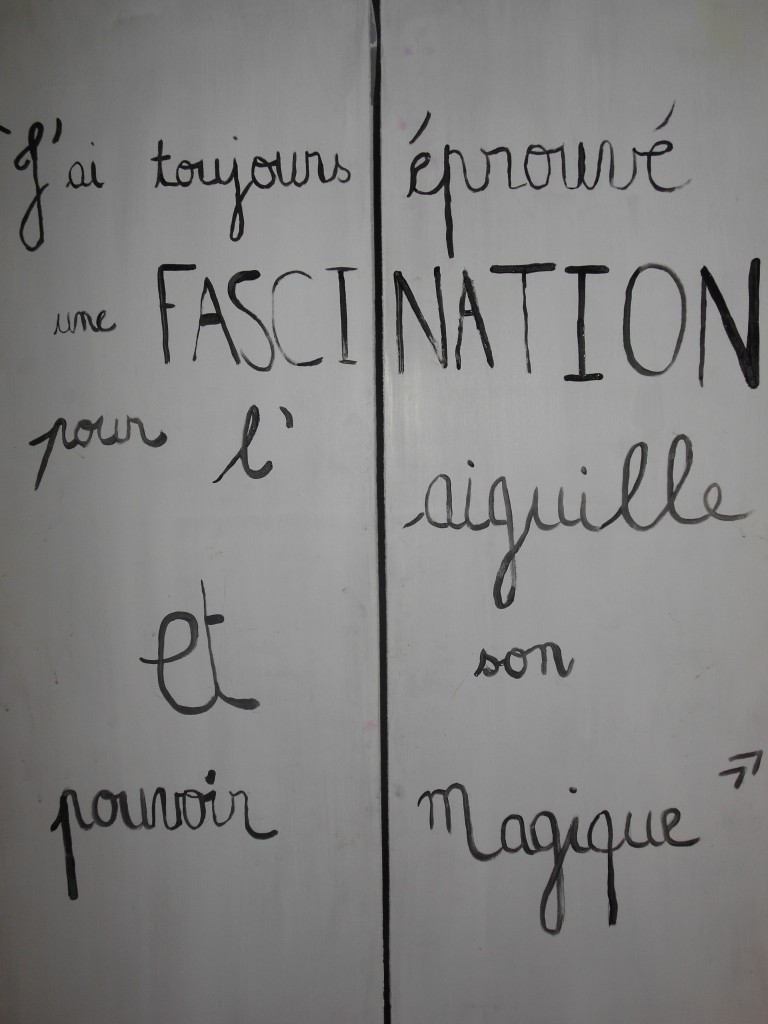 J'ai toujours éprouvé
une FASCINATION
pour l' aiguille
et son
pouvoir magique »